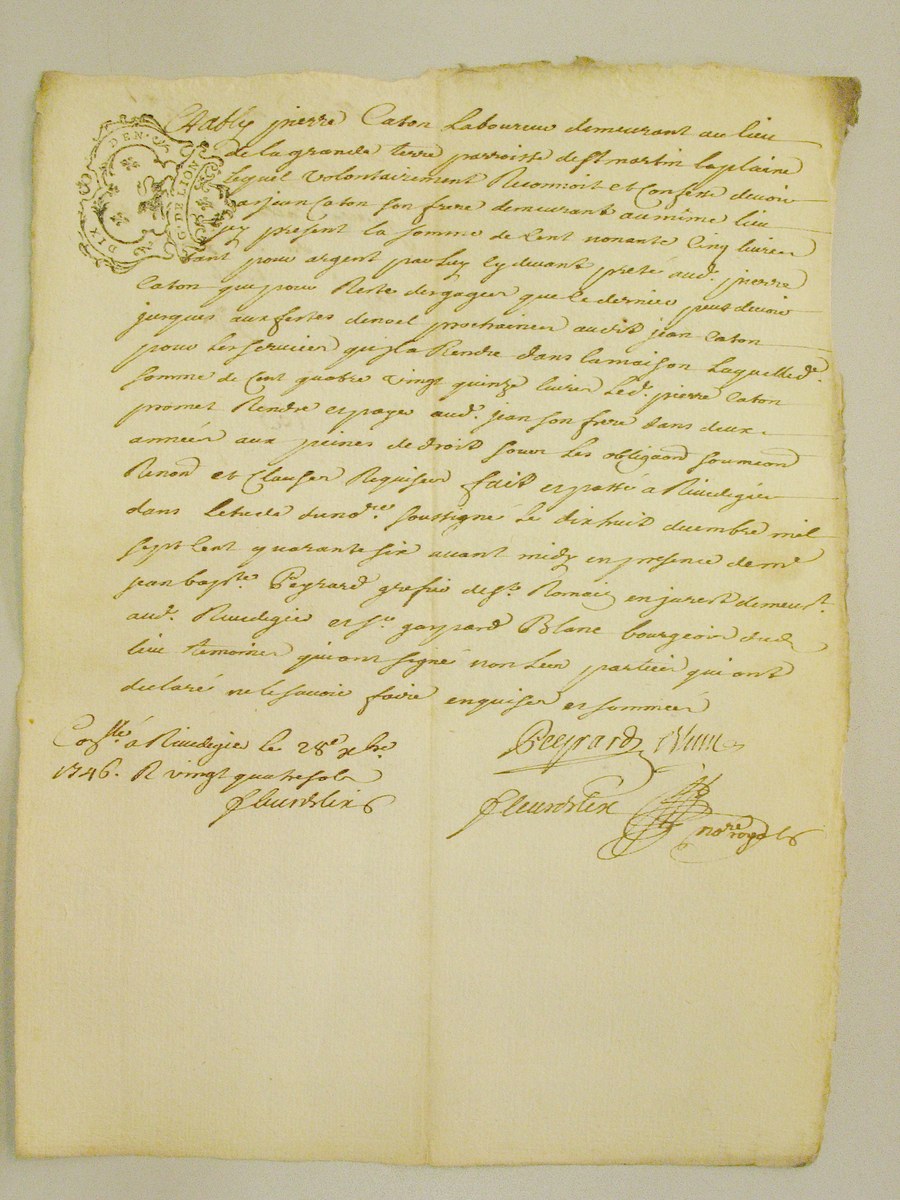 DIX DEN.
G. DE LION
Estably pierre Caton Laboureur demeurant au lieu
de la grande terre parroisse de st martin la plaine
lequel volontairement Reconnoit et Confesse devoir
a jean Caton son frere demeurant au mime lieu
icy present la somme de Cent nonante Cinq livres
tant pour argent par luy cy devant preté aud. pierre
Caton que pour Reste de gages que le dernier peut devoir
jusques aux festes de noel prochaines audit jean Caton
pour les services qu'il a Rendre dans la maison Laquelle d.
somme de Cent quatre vingt quinze livres Led. pierre Caton
promet Rendre et payer aud. jean son frere dans deux
années aux peines de droit sous les obligaons soumions
Renons et Clauses Requises fait et passé à Rivedegier
dans letude du nore. soussigné Le dix huit decembre mil
sept Cent quarante six avant midy en presence de mr
jean bapte. Peyrard grefier de st. Romain en jarest demeurt.
aud. Rivedegier et sr. gaspard Blanc bourgeois dud.
lieu temoins qui ont signé non Les parties qui ont
declaré ne le savoir faire enquises et sommées
Peyrard Blanc
Conllé à Rivedegier le 28e xbre
1746. R vingt quatre sols
fleurdelix
fleurdelix nore royal